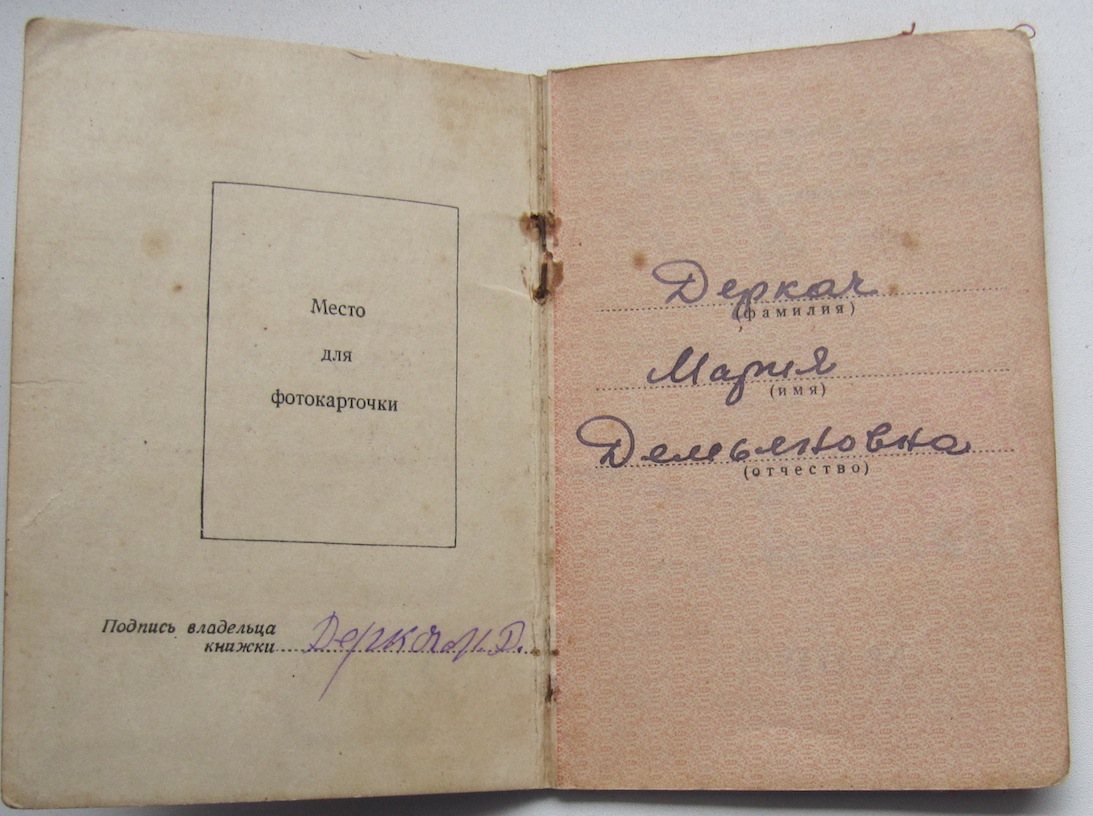 Место
для
фотокарточки
Подпись владельца
книжки Деркач М.Д.
Деркач
(фамилия)
Мария
(имя)
Демьяновна
(отчество)